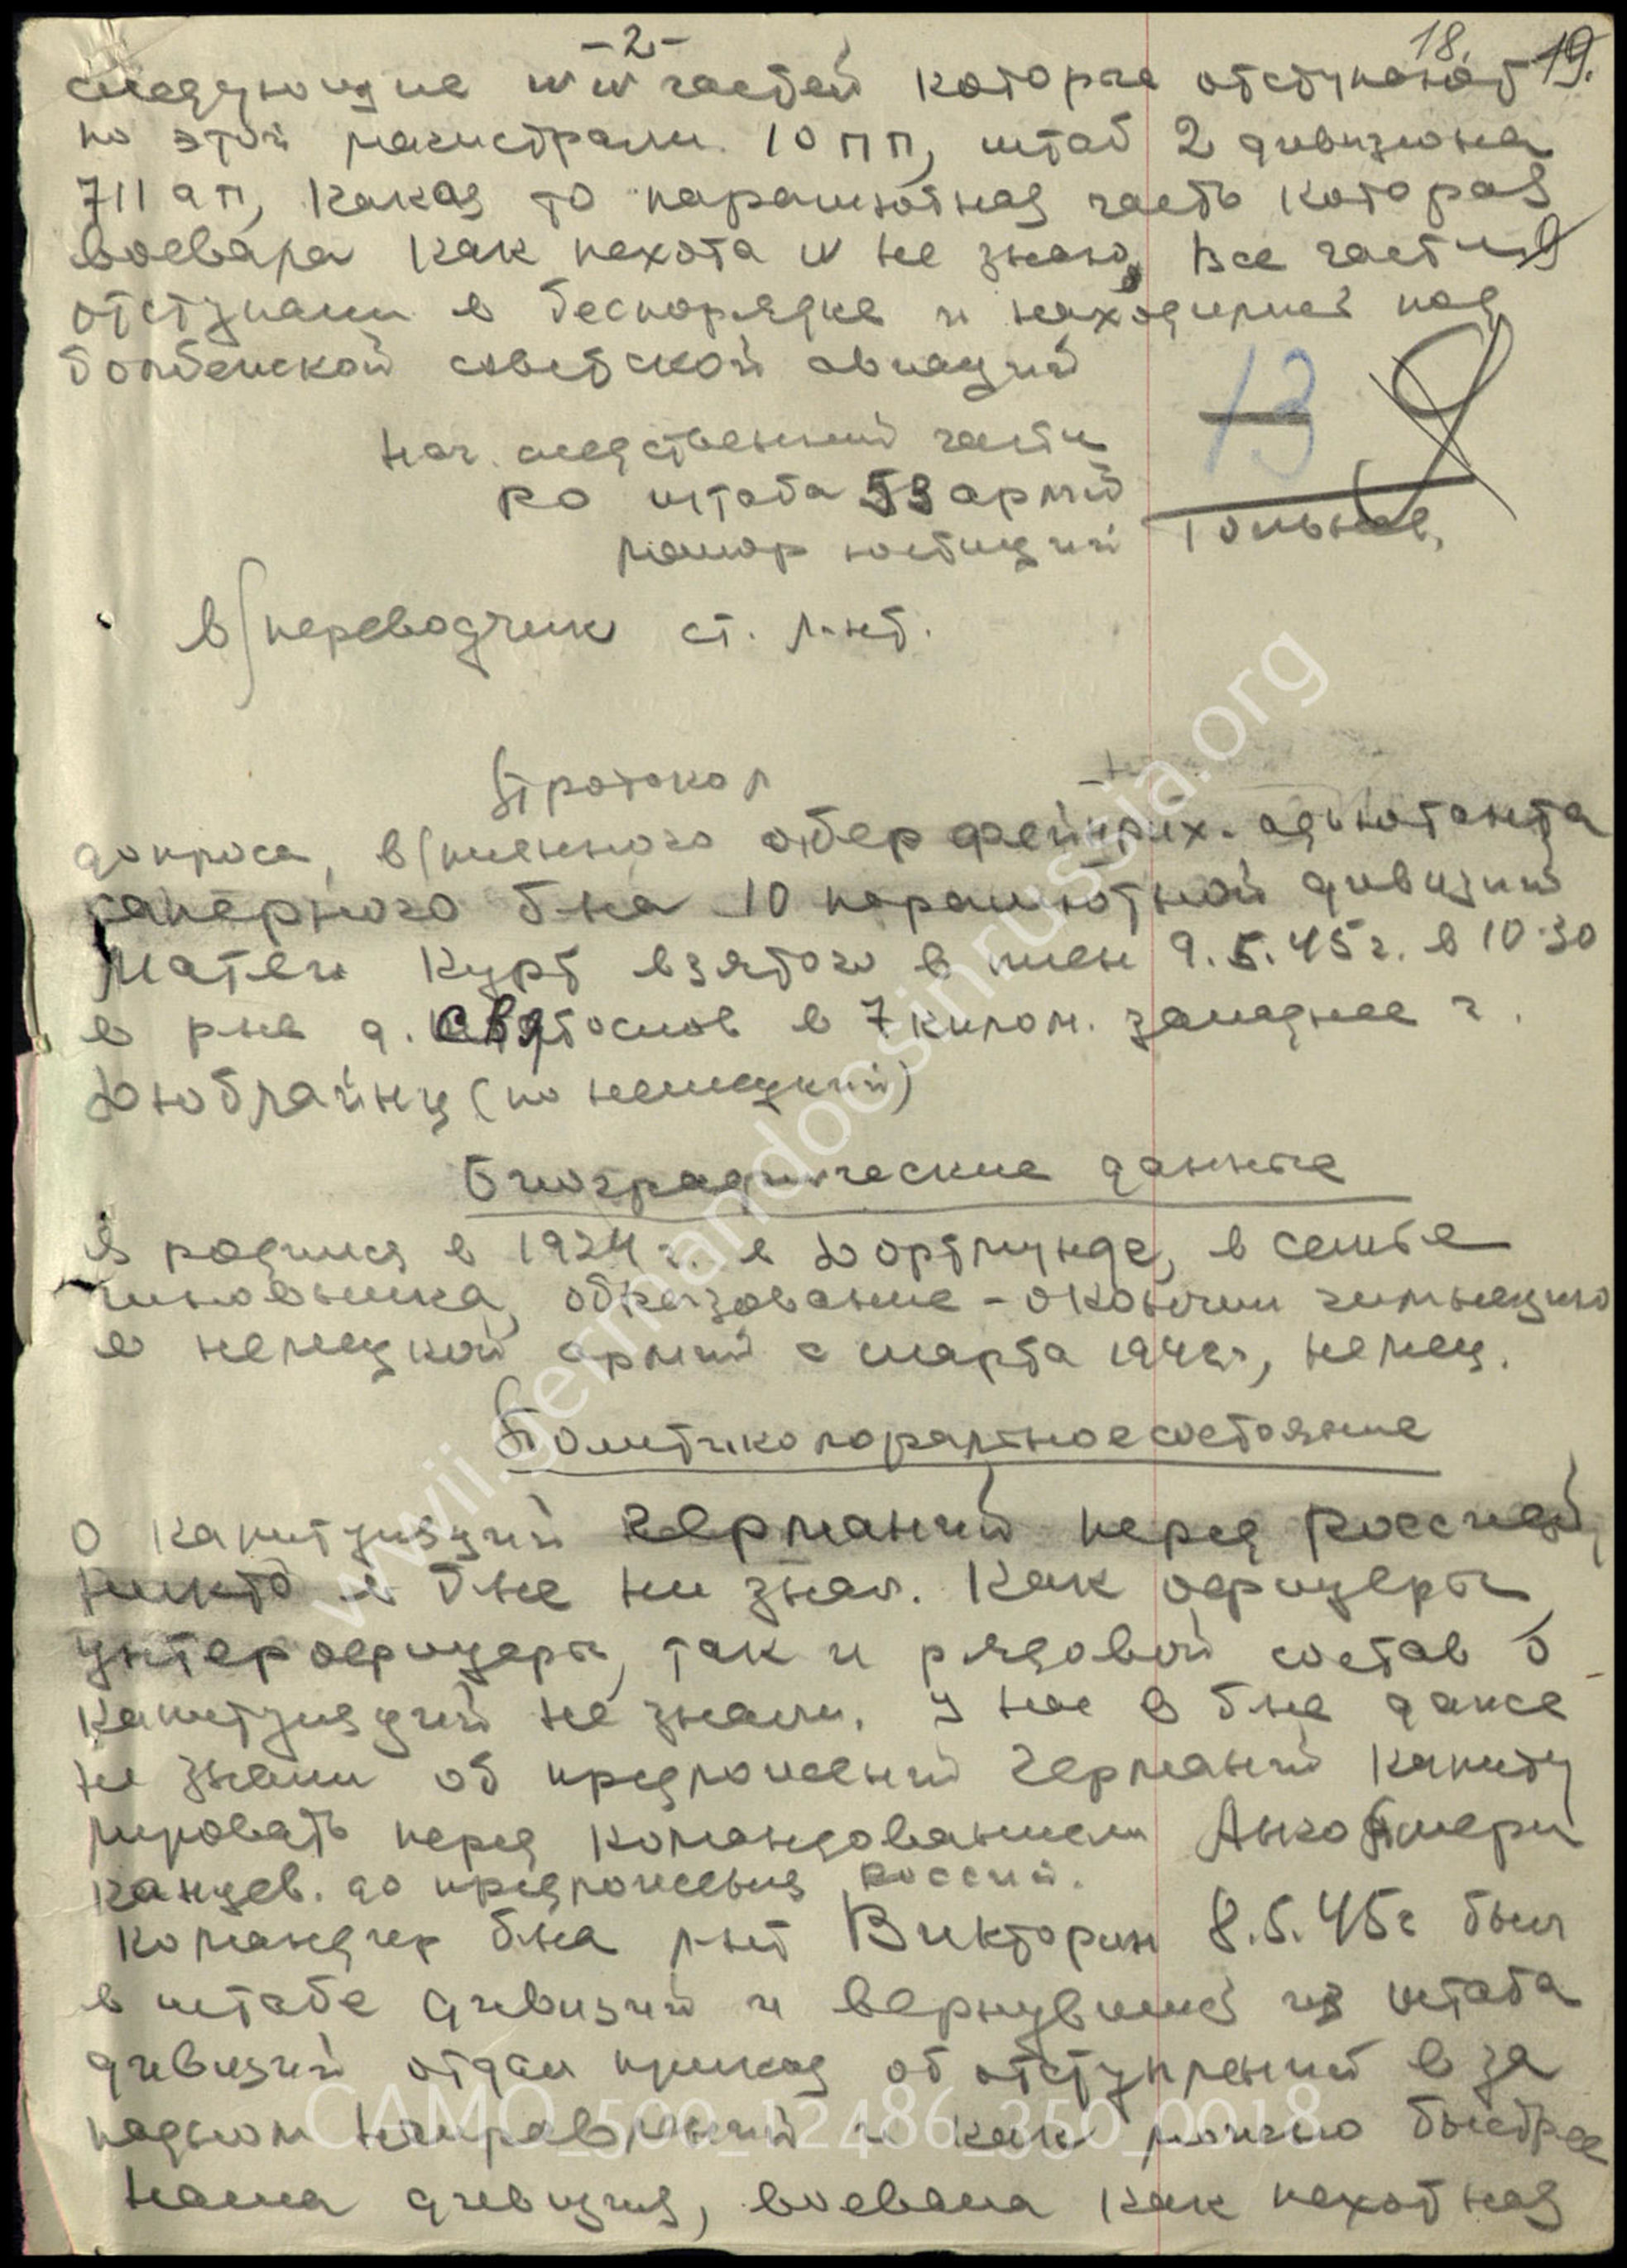 -2-
18. 19.
следующие №№ частей которые отступают
по этой магистрали. 10 пп, штаб 2 дивизиона
711 ап, какая то парашютная часть которая
воевала как пехота № не знаю, все части
отступали в беспорядке и находились под
бомбежкой советской авиаций
13
нач. следственний части
ро штаба 53 армий
маиор юстиций
в/переводчик ст. л-нт.
Протокол
допроса, в/пленного обер фейнрих-адьютанта
саперного б-на 10 парашютной дивизий
Матеи Курт взятого в плен 9.5.45г. в 10.30
в р-не д. Святослов в 7 килом. западнее г.
Дюбрайнц (по немецкий)
Биографические данные
Я родился в 1924 г. в Дортмунде, в семье
чиновника, образование - окончил гимнацию
в немецкой армий с марта 1942г, немец.
Политико моральное состояние
О капитуляций Германий перед Россией,
никто в б-не ни знал. Как офицеры,
унтерофицеры, так и рядовой состав о
капитуляций не знали. У нас в б-не даже
не знали об предложений Германий капиту
лировать перед командованием Англо Амери
канцев. до предложения Россий.
Командир б-на л-нт Викторин 8.5.45г был
в штабе дивизий и вернувшись из штаба
дивизий отдал приказ об отступлений в за
падном направлений и как можно быстрее
Наша дивизия, воевала как пехотная
www.germandocsinrussia.org
CAMO_500_12486_350_0018